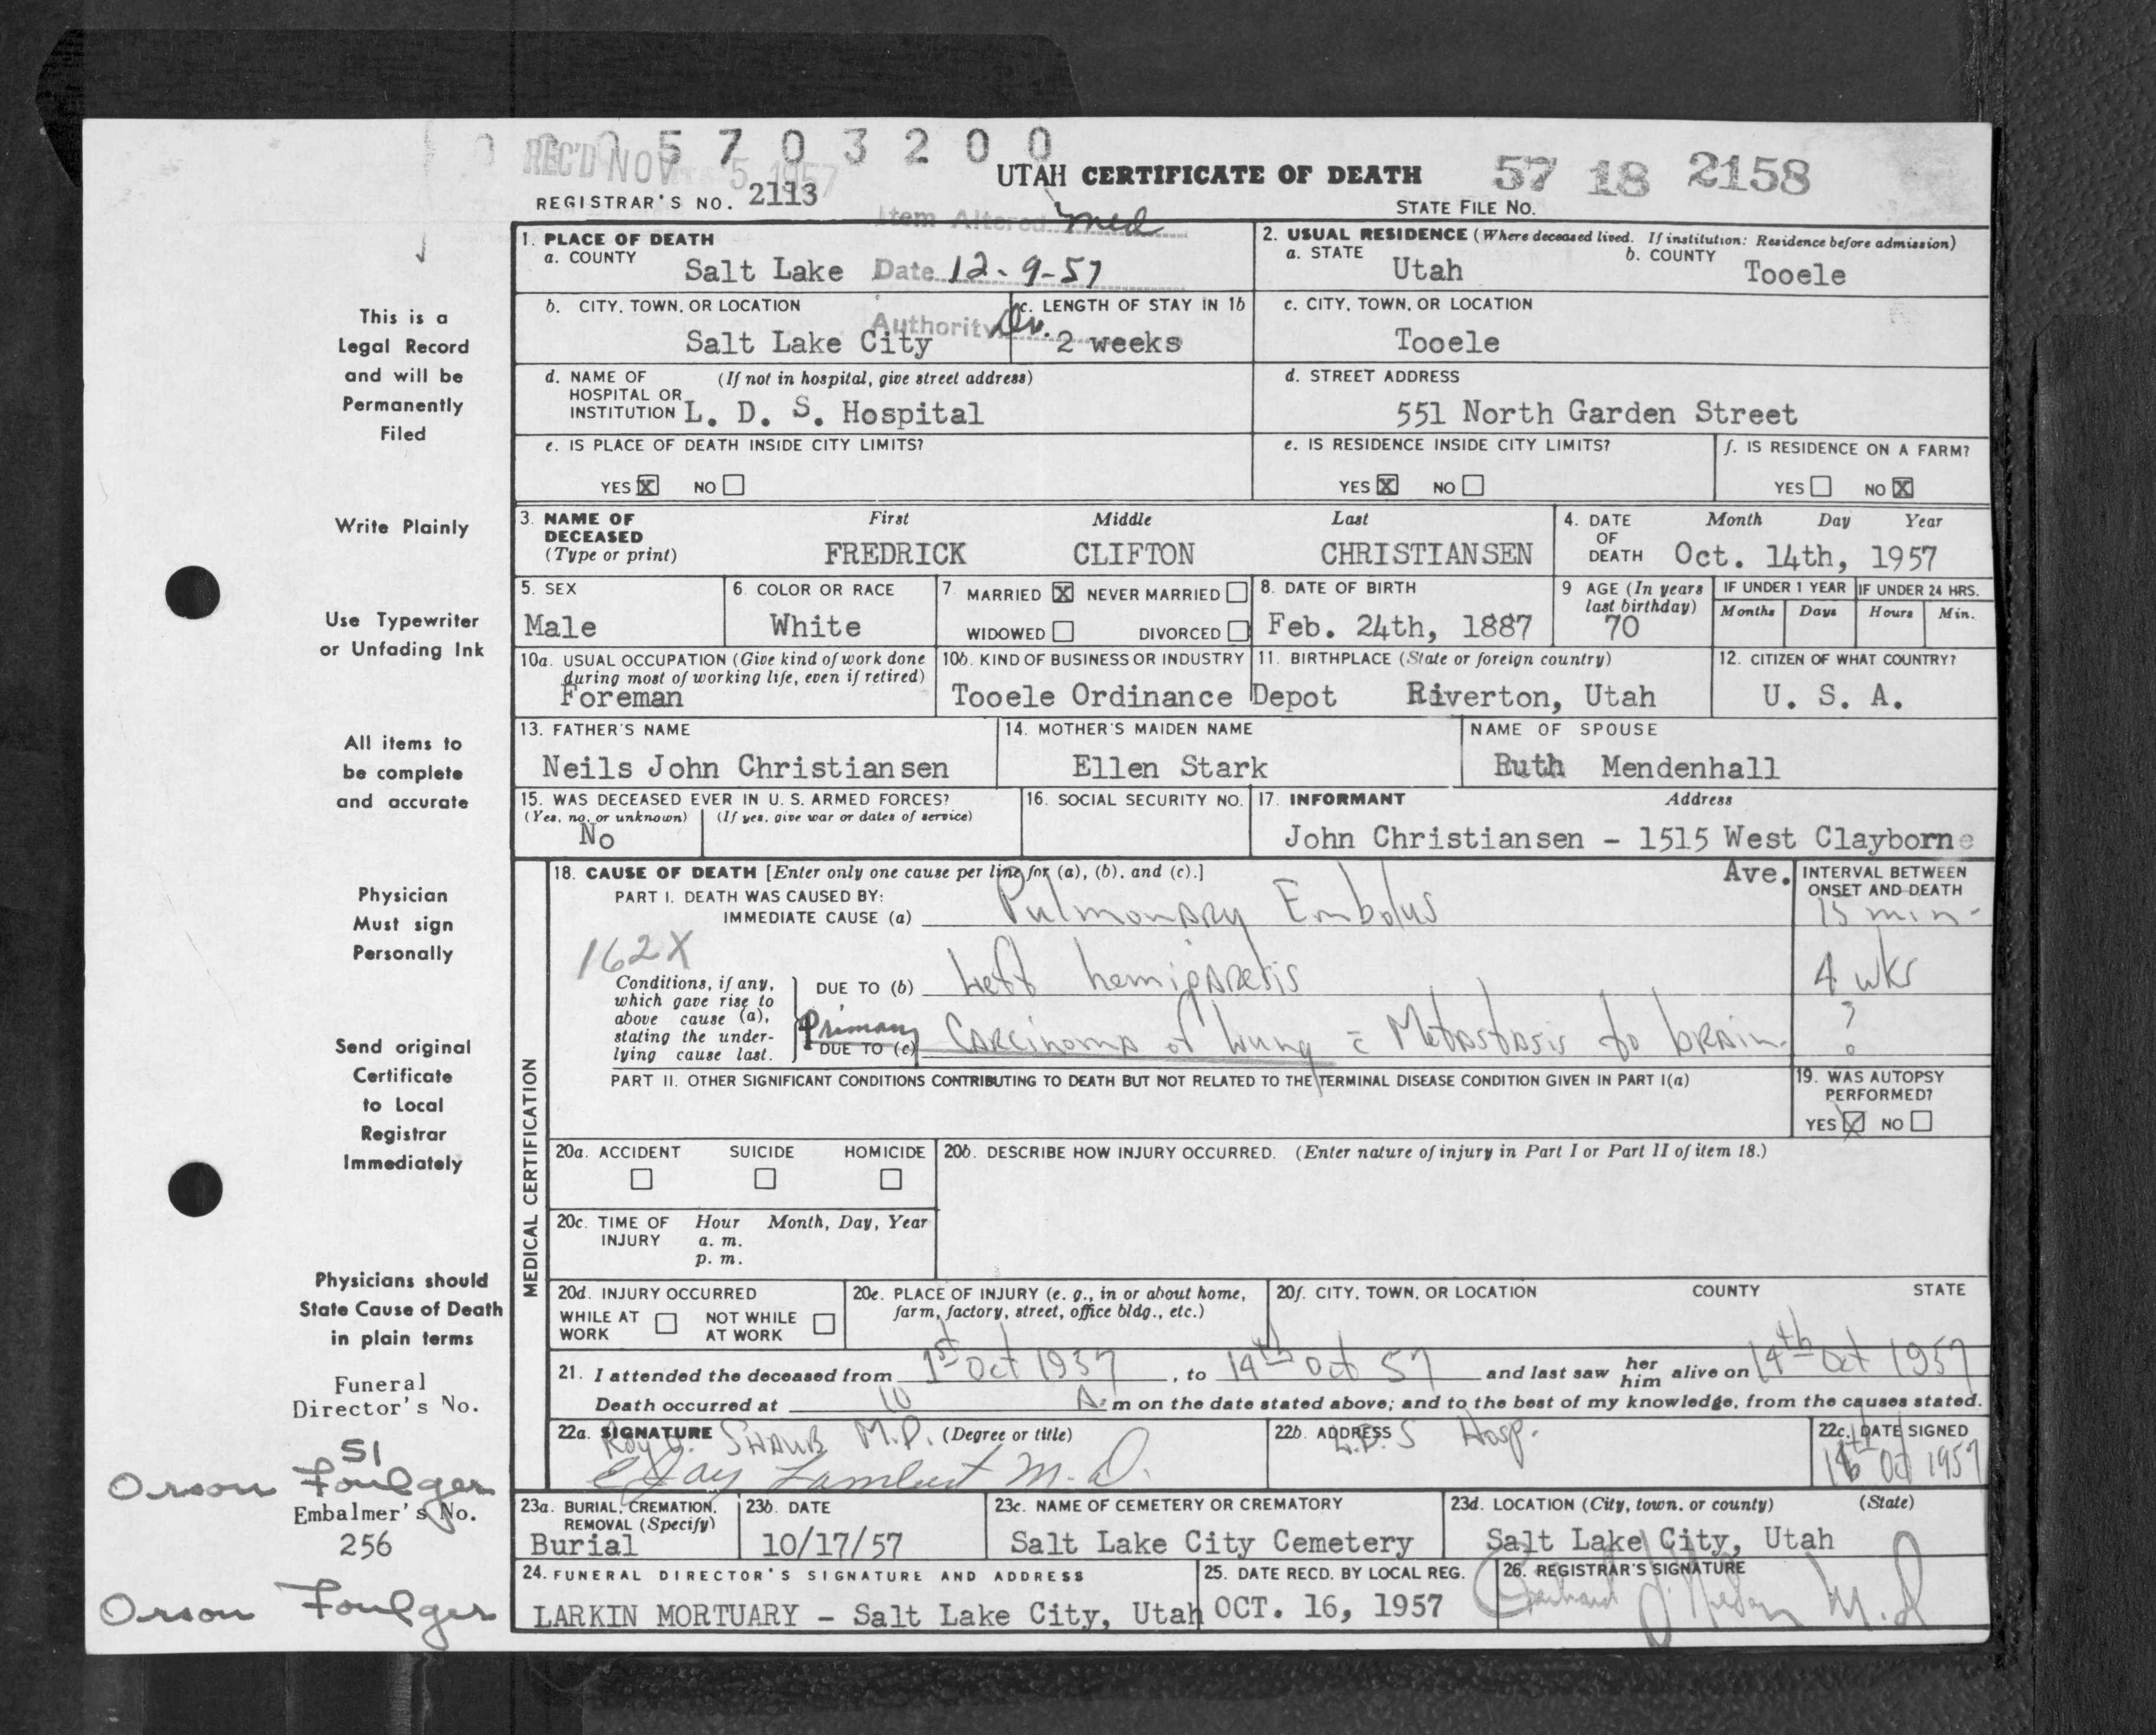 5 7 0 3 2 0 0
REC'D NOV 5 1957
UTAH CERTIFICATE OF DEATH
57 18 2158
REGISTRAR'S NO. 2113
STATE FILE NO.
Item Altered med
1. PLACE OF DEATH
a. COUNTY
Salt Lake
Date 12-9-57
2. USUAL RESIDENCE (Where deceased lived. If institution: Residence before admission)
a. STATE
Utah
b. COUNTY
Tooele
b. CITY, TOWN, OR LOCATION
Salt Lake City
Authority Dr.
c. LENGTH OF STAY IN 1b
2 weeks
c. CITY, TOWN, OR LOCATION
Tooele
d. NAME OF HOSPITAL OR INSTITUTION
(If not in hospital, give street address)
L. D. S. Hospital
d. STREET ADDRESS
551 North Garden Street
e. IS PLACE OF DEATH INSIDE CITY LIMITS?
YES X NO
e. IS RESIDENCE INSIDE CITY LIMITS?
YES X NO
f. IS RESIDENCE ON A FARM?
YES NO X
3. NAME OF DECEASED
(Type or print)
First Middle Last
FREDRICK CLIFTON CHRISTIANSEN
4. DATE OF DEATH
Month Day Year
Oct. 14th, 1957
5. SEX
Male
6. COLOR OR RACE
White
7 MARRIED X NEVER MARRIED
WIDOWED DIVORCED
8. DATE OF BIRTH
Feb. 24th, 1887
9 AGE (In years last birthday)
70
IF UNDER 1 YEAR
Months Days
IF UNDER 24 HRS.
Hours Min.
10a. USUAL OCCUPATION (Give kind of work done during most of working life, even if retired)
Foreman
10b. KIND OF BUSINESS OR INDUSTRY
Tooele Ordinance Depot
11. BIRTHPLACE (State or foreign country)
Riverton, Utah
12. CITIZEN OF WHAT COUNTRY?
U. S. A.
13. FATHER'S NAME
Neils John Christiansen
14. MOTHER'S MAIDEN NAME
Ellen Stark
NAME OF SPOUSE
Ruth Mendenhall
15. WAS DECEASED EVER IN U. S. ARMED FORCES?
(Yes, no, or unknown) (If yes, give war or dates of service)
No
16. SOCIAL SECURITY NO.
17. INFORMANT Address
John Christiansen - 1515 West Clayborne
Ave.
MEDICAL CERTIFICATION
18. CAUSE OF DEATH [Enter only one cause per line for (a), (b), and (c).]
PART I. DEATH WAS CAUSED BY:
IMMEDIATE CAUSE (a) Pulmonary Embolus
INTERVAL BETWEEN ONSET AND DEATH
15 min-
162X
Conditions, if any, which gave rise to above cause (a), stating the underlying cause last.
DUE TO (b) Left hemiparesis
4 wks
Primary
DUE TO (c) Carcinoma of Lung c̄ Metastasis to brain
?
PART II. OTHER SIGNIFICANT CONDITIONS CONTRIBUTING TO DEATH BUT NOT RELATED TO THE TERMINAL DISEASE CONDITION GIVEN IN PART I(a)
19. WAS AUTOPSY PERFORMED?
YES X NO
20a. ACCIDENT SUICIDE HOMICIDE
20b. DESCRIBE HOW INJURY OCCURRED. (Enter nature of injury in Part I or Part II of item 18.)
20c. TIME OF INJURY Hour Month, Day, Year
a. m.
p. m.
20d. INJURY OCCURRED
WHILE AT WORK NOT WHILE AT WORK
20e. PLACE OF INJURY (e. g., in or about home, farm, factory, street, office bldg., etc.)
20f. CITY, TOWN, OR LOCATION COUNTY STATE
21. I attended the deceased from 1st Oct 1957, to 14th Oct 57 and last saw her him alive on 14th Oct 1957
Death occurred at 10 A. m on the date stated above; and to the best of my knowledge, from the causes stated.
22a. SIGNATURE (Degree or title)
M.D.
E Jay Lambert M.D.
22b. ADDRESS
L.D.S Hosp.
22c. DATE SIGNED
Oct 1957
23a. BURIAL, CREMATION, REMOVAL (Specify)
Burial
23b. DATE
10/17/57
23c. NAME OF CEMETERY OR CREMATORY
Salt Lake City Cemetery
23d. LOCATION (City, town, or county) (State)
Salt Lake City, Utah
24. FUNERAL DIRECTOR'S SIGNATURE AND ADDRESS
LARKIN MORTUARY - Salt Lake City, Utah
25. DATE RECD. BY LOCAL REG.
OCT. 16, 1957
26. REGISTRAR'S SIGNATURE
M.D
This is a
Legal Record
and will be
Permanently
Filed
Write Plainly
Use Typewriter
or Unfading Ink
All items to
be complete
and accurate
Physician
Must sign
Personally
Send original
Certificate
to Local
Registrar
Immediately
Physicians should
State Cause of Death
in plain terms
Funeral
Director's No.
51
Orson Foulger
Embalmer's No.
256
Orson Foulger